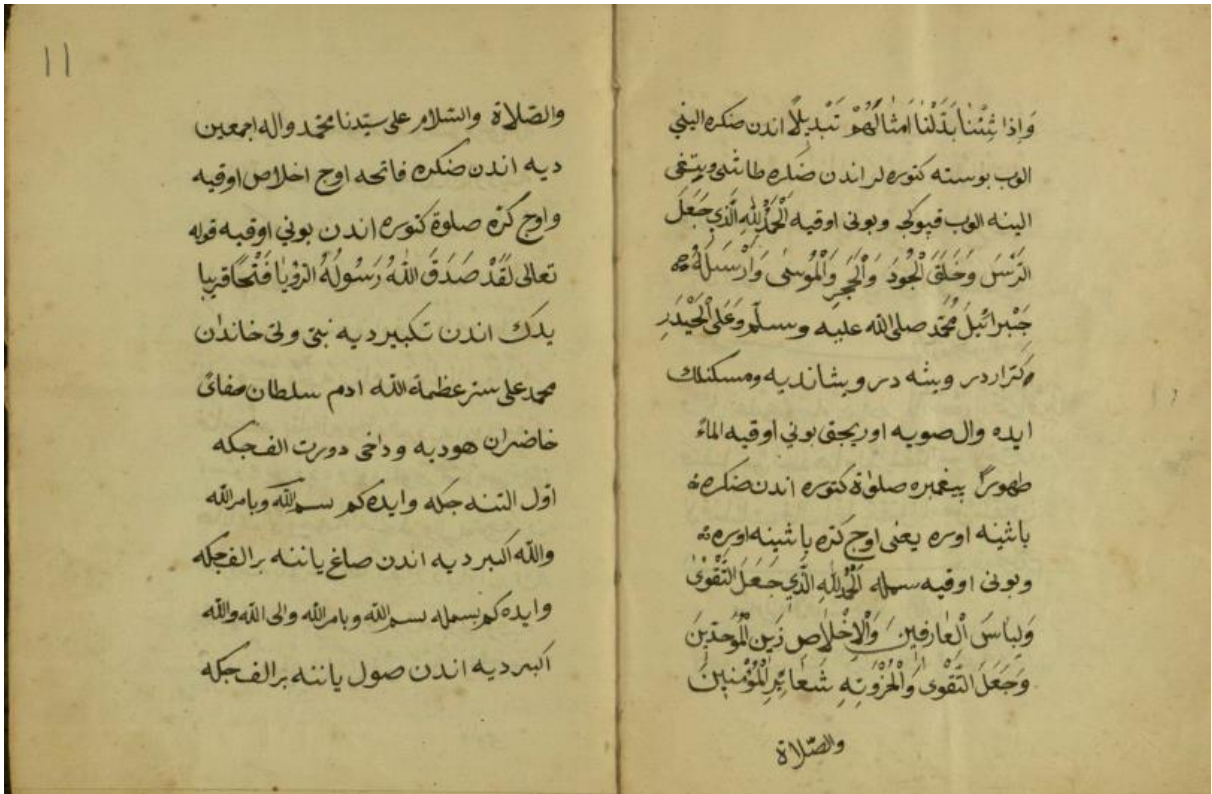 وَإِذَا شِئْنَا بَدَّلْنَا اَمْثَالَهُمْ تَبْدِيلًا اندن صكره اليني
الوب بوسته كتوره لر اندن صكره طاشى ويتغى
الينه الوب قيوكجه وبونى اوقيه اَلْحَمْدُ لِلّٰهِ الَّذِي جَعَلَ
الرَّسَ وَخَلَقَ الْجُودَ وَالْحَجَرِ وَالْمُوسٰى وَاَرْسَلَهُ
جَبْرَائِيلَ مُحَمَّدْ صلى الله عليه وسلّم وَعَلَى الْحَيْدَرِ
كترار در ويشه در ويشانديه ومسكنلك
ايده وال صويه اوريجق بوني اوقيه الماءً
طهورًا پيغمبره صلوٰة كتوره اندن صكره
باشينه اوره يعنى اوچ كره باشينه اوره
وبونى اوقيه بسمله اَلْحَمْدُ لِلّٰهِ الَّذِي جَعَلَ التَّقْوٰى
وَلِبَاسَ الْعَارِفِينَ وَالْاِخْلَاصِ زَيْنَ الْمُوَحِّدِينَ
وَجَعَلَ التَّقْوٰى وَالْخُرْوَتِهِ شَعَائِرِ الْمُؤْمِنِينَ
والصّلاة
١١
والصّلاة والسّلام على سيّدنا محمّد واله اجمعين
ديه اندن صكره فاتحه اوج اخلاص اوقيه
واوج كرّه صلوة كتوره اندن بوني اوقيه قوله
تعالى لَقَدْ صَدَقَ اللّٰهُ رَسُولَهُ الرُّوْيَا فَتْحًا قريبا
يدك اندن تكبير ديه نبىّ ولىّ خاندان
محمد على ستر عظمة الله ادم سلطان صفائ
حاضران هوديه وداخى دورت الف جكه
اوّل التنه جكه وايده كم بسم الله وبامر الله
والله اكبر ديه اندن صاغ ياننه بر الف جكه
وايده كم بسمله بسم الله وبامر الله والى الله والله
اكبر ديه اندن صول ياننه بر الف جكه